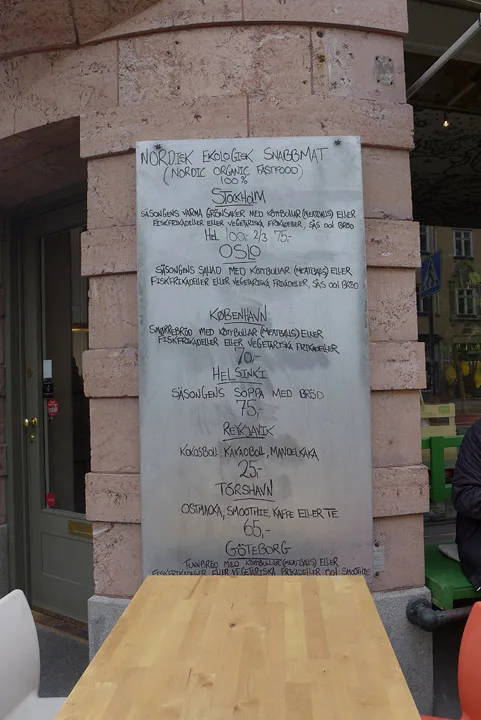 NORDISK EKOLOGISK SNABBMAT
(NORDIC ORGANIC FASTFOOD)
100%
STOCKHOLM
SÄSONGENS VARMA GRÖNSAKER MED KÖTTBULLAR (MEATBALLS) ELLER
FISKFRIKADELLER ELLER VEGETARISKA FRIKADELLER, SÅS OCH BRÖD
HEL 100,- 2/3 75,-
OSLO
SÄSONGENS SALLAD MED KÖTTBULLAR (MEATBALLS) ELLER
FISKFRIKADELLER ELLER VEGETARISKA FRIKADELLER, SÅS OCH BRÖD
KØBENHAVN
SMØRREBRÖD MED KÖTTBULLAR (MEATBALLS) ELLER
FISKFRIKADELLER ELLER VEGETARISKA FRIKADELLER
70,-
HELSINKI
SÄSONGENS SOPPA MED BRÖD
75,-
REYKJAVIK
KOKOSBOLL, KAKAOBOLL, MANDELKAKA
25,-
TÓRSHAVN
OSTMACKA, SMOOTHIE, KAFFE ELLER TE
65,-
GÖTEBORG
TUNNBRÖD MED KÖTTBULLAR (MEATBALLS) ELLER
FISKFRIKADELLER ELLER VEGETARISKA FRIKADELLER OCH SMOOTHIE